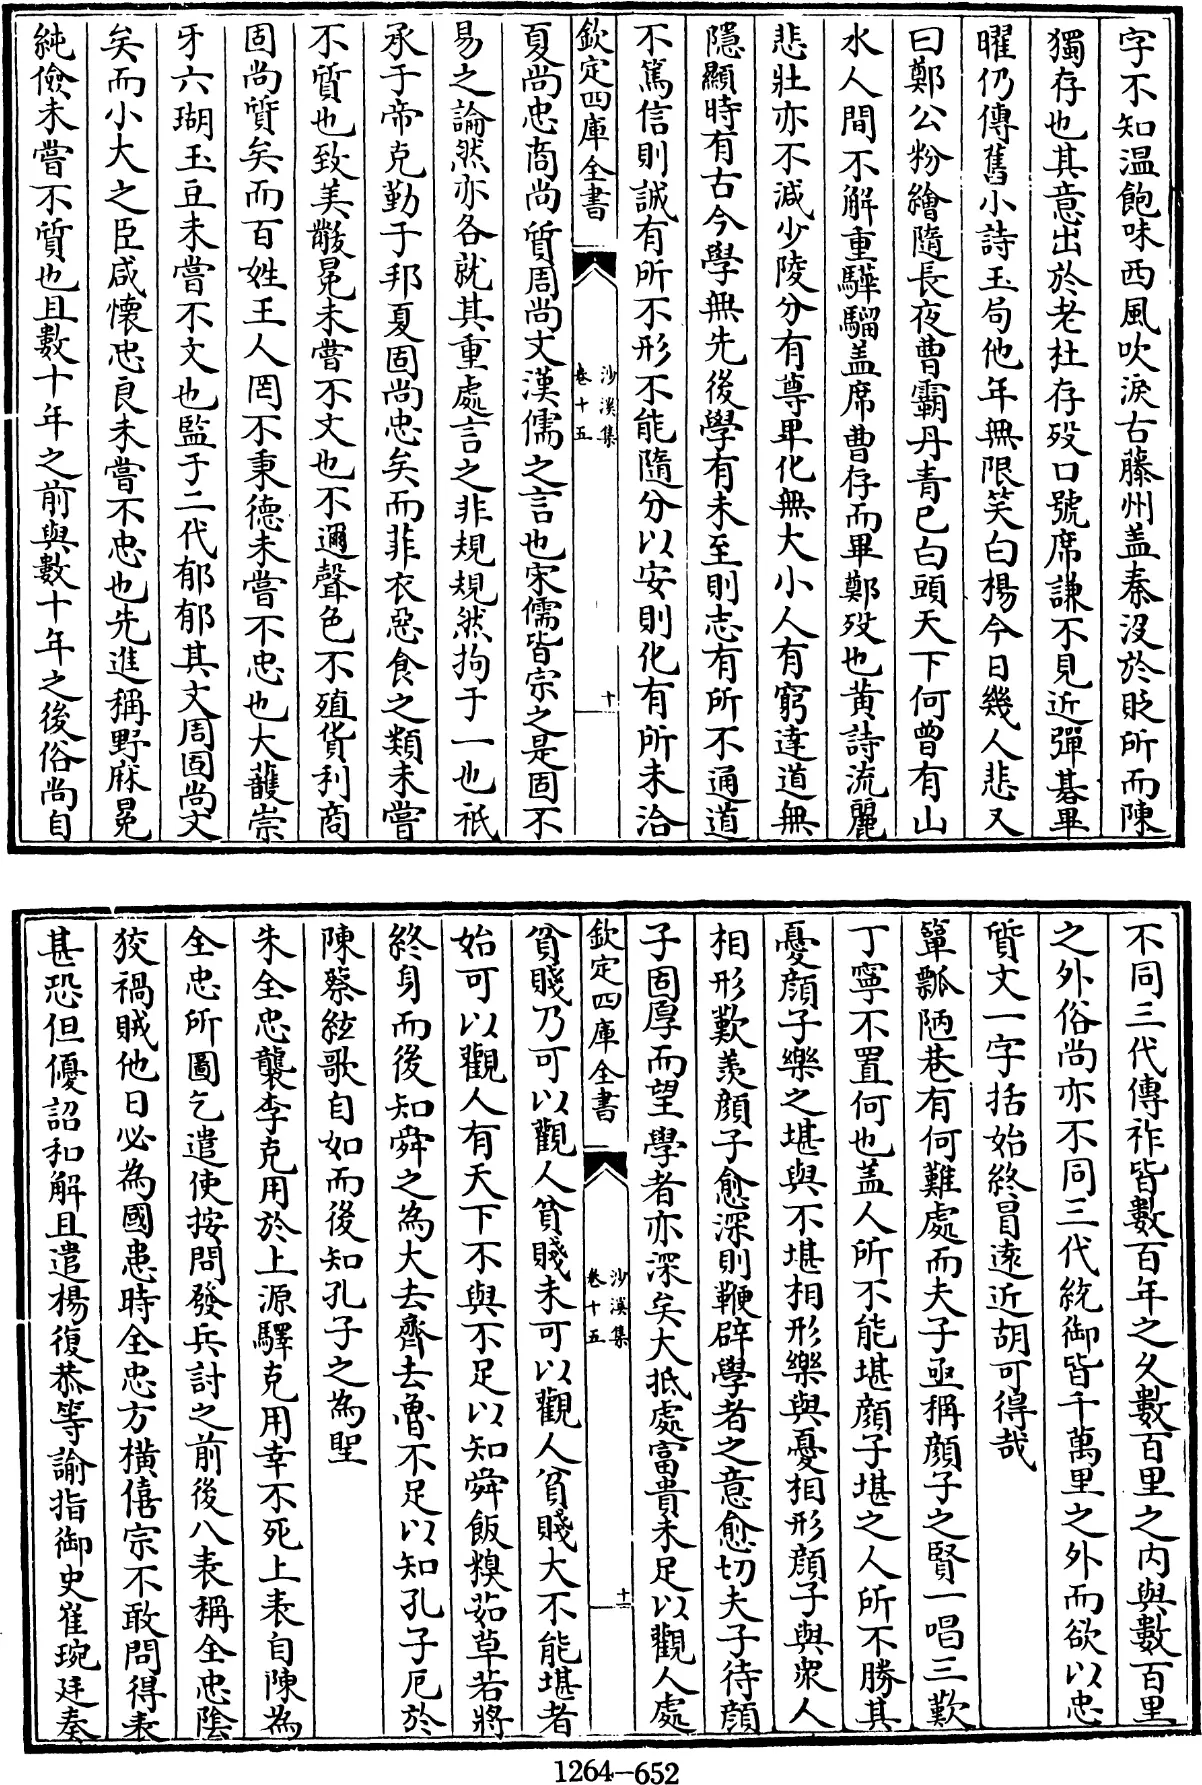 字不知温飽味西風吹淚古藤州盖秦沒於貶所而陳
獨存也其意出於老杜存歿口號席謙不見近彈碁畢
曜仍傳舊小詩玉局他年無限笑白楊今日幾人悲又
曰鄭公粉繪隨長夜曹霸丹青已白頭天下何曾有山
水人間不解重驊騮盖席曹存而畢鄭歿也黄詩流麗
悲壯亦不減少陵分有尊卑化無大小人有窮達道無
隱顯時有古今學無先後學有未至則志有所不通道
不篤信則誠有所不形不能隨分以安則化有所未洽
欽定四庫全書
沙溪集
卷十五
十
夏尚忠商尚質周尚文漢儒之言也宋儒皆宗之是固不
易之論然亦各就其重處言之非規規然拘于一也祇
承于帝克勤于邦夏固尚忠矣而菲衣惡食之類未嘗
不質也致美黻冕未嘗不文也不邇聲色不殖貨利商
固尚質矣而百姓王人罔不秉德未嘗不忠也大護崇
牙六瑚玉豆未嘗不文也監于二代郁郁其文周固尚文
矣而小大之臣咸懷忠良未嘗不忠也先進稱野麻冕
純儉未嘗不質也且數十年之前與數十年之後俗尚自
不同三代傳祚皆數百年之久數百里之内與數百里
之外俗尚亦不同三代統御皆千萬里之外而欲以忠
質文一字括始終冒遠近胡可得哉
簞瓢陋巷有何難處而夫子亟稱顔子之賢一唱三歎
丁寧不置何也盖人所不能堪顔子堪之人所不勝其
憂顔子樂之堪與不堪相形樂與憂相形顔子與衆人
相形歎羨顔子愈深則鞭辟學者之意愈切夫子待顔
子固厚而望學者亦深矣大抵處富貴未足以觀人處
欽定四庫全書
沙溪集
卷十五
十一
貧賤乃可以觀人貧賤未可以觀人貧賤大不能堪者
始可以觀人有天下不與不足以知舜飯糗茹草若將
終身而後知舜之為大去齊去魯不足以知孔子厄於
陳蔡絃歌自如而後知孔子之為聖
朱全忠襲李克用於上源驛克用幸不死上表自陳為
全忠所圖乞遣使按問發兵討之前後八表稱全忠陰
狡禍賊他日必為國患時全忠方横僖宗不敢問得表
甚恐但優詔和解且遣楊復恭等諭指御史崔琬廷奏
1264—652